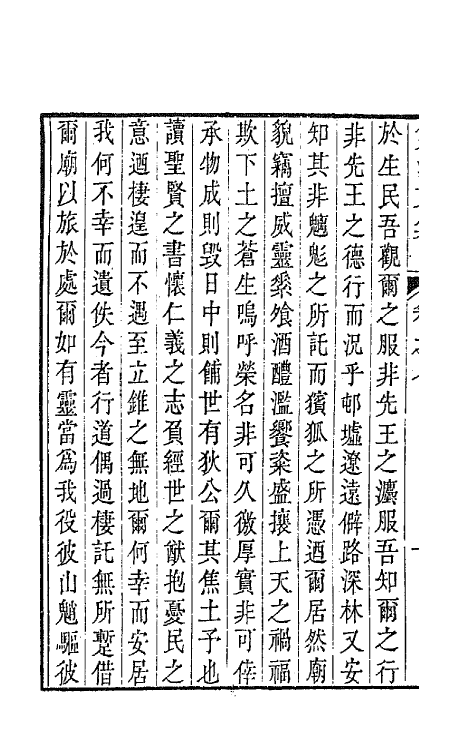 於生民吾觀爾之服非先王之灋服吾知爾之行
非先王之德行而況乎邨墟遼遠僻路深林又安
知其非魑彪之所託而獱狐之所憑迺爾居然廟
貌竊擅威靈糳飧酒醴濫饗粢盛攘上天之禍福
欺下土之蒼生嗚呼榮名非可久徼厚實非可倖
承物成則毀日中則餔世有狄公爾其焦土予也
讀聖賢之書懷仁義之志負經世之猷抱憂民之
意迺棲遑而不遇至立錐之無地爾何幸而安居
我何不幸而遺佚今者行道偶過棲託無所蹔借
爾廟以旅於處爾如有靈當爲我役彼山魈驅彼